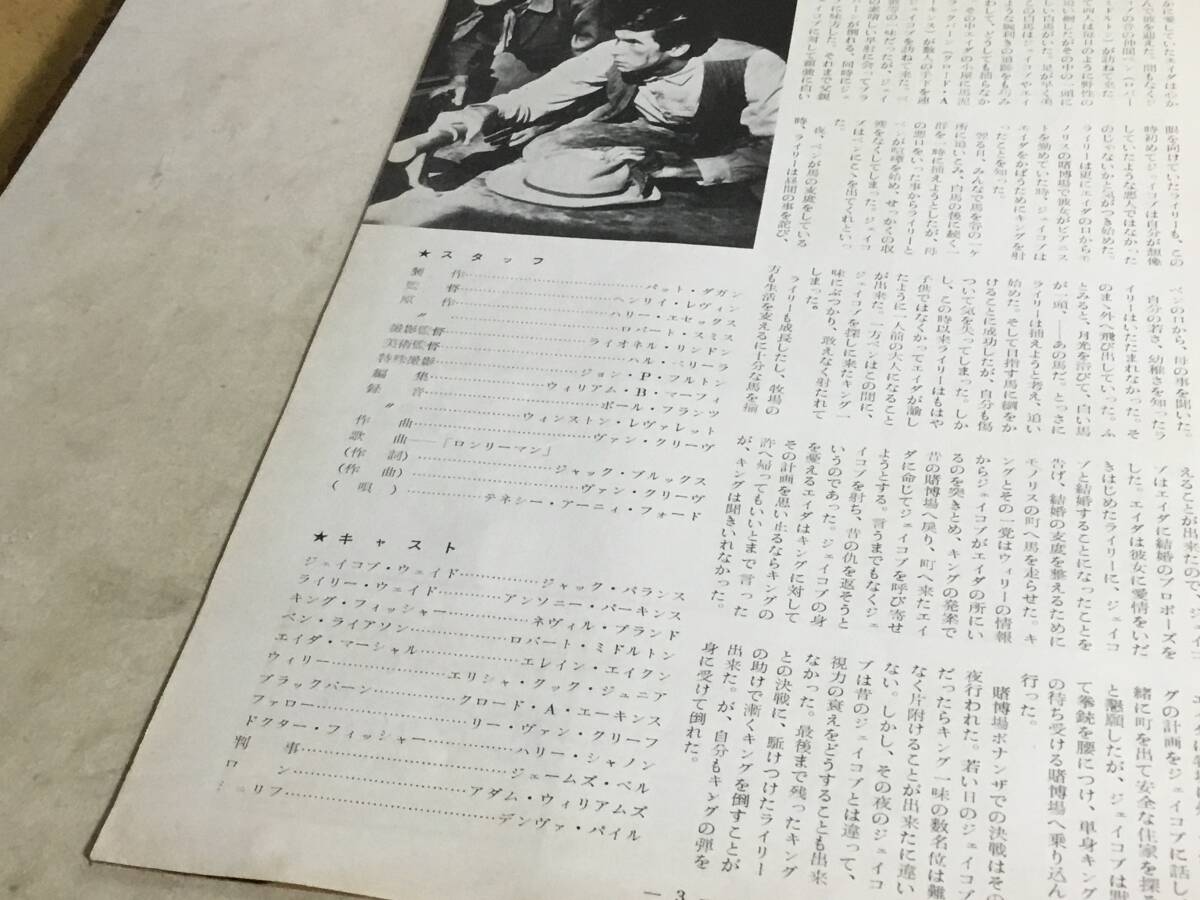 眼を向けていたライリーも、この
時初めてジェイコブは自分が想像
していたような悪人ではなかった
のじゃないかと気がつき始めた。
ライリーは更にエイダの口からモ
ノリスの賭博場で彼女がピアニス
トを勤めていた時、ジェイコブは
エイダをかばうためにキングを射
ったことを知った。
翌る日、みんなで馬を谷の一ヶ
所に追いこみ、白馬の後に続く一
群を一時に捕えようとしたが、母
の悪口をいった事からライリーと
ベンが喧嘩を始め、せっかくの収
穫をなくしてしまった。ジェイコ
ブはベンにここを出てくれといっ
た。
夜、ベンが馬の支度をしている
時、ライリーは昼間の事を詑び、
ベンの口から、母の事を聞いた。
自分の若さ、幼稚さを知ったラ
イリーはいたたまれなかった。そ
のまゝ外へ飛び出していった。ふ
とみると、月光を浴びて、白い馬
が一頭、——あの馬だ。とっさに
ライリーは捕えようと考え、追い
始めた。そして目指す馬に綱をか
けることに成功したが、自分も傷
ついて気を失ってしまった。しか
し、この時以来ライリーはもはや
子供ではなくかってエイダが諭し
たように一人前の大人になること
が出来た。一方ベンはこの間に、
ジェイコブを探しに来たキング一
味にぶつかり、敢えなく射たれて
しまった。
ライリーも成長したし、牧場の
方も生活を支えるに十分な馬を揃
えることが出来たので、ジェイコ
ブはエイダに結婚のプロポーズを
した。エイダは彼女に愛情をいだ
きはじめたライリーに、ジェイコ
ブと結婚することになったことを
告げ、結婚の支度を整えるために
モノリスの町へ馬を走らせた。キ
ングとその一党はウィリーの情報
からジェイコブがエイダの所にい
るのを突きとめ、キングの発案で
昔の賭博場へ戻り、町へ来たエイ
ダに命じてジェイコブを呼び寄せ
ようとする。言うまでもなくジェ
イコブを射ち、昔の仇を返そうと
いうのであった。ジェイコブの身
を憂えるエイダはキングに対して
その計画を思い止るならキングの
許へ帰ってもいいとまで言った
が、キングは聞きいれなかった。
グの計画をジェイコブに話し
緒に町を出て安全な住家を探
と懇願したが、ジェイコブは
て拳銃を腰につけ、単身キング
の待ち受ける賭博場へ乗り込ん
行った。
賭博場ボナンザでの決戦はその
夜行われた。若い日のジェイコブ
だったらキング一味の数名位は難
なく片附けることが出来たに違い
ない。しかし、その夜のジェイコ
ブは昔のジェイコブとは違って、
視力の衰えをどうすることも出来
なかった。最後まで残ったキング
との決戦に、駈けつけたライリー
の助けで漸くキングを倒すことが
出来た。が、自分もキングの弾を
身に受けて倒れた。
★スタッフ
製作……パット・ダガン
監督……ヘンリイ・レヴィン
原作……ハリー・エセックス
〃……ロバート・スミス
撮影監督……ライオネル・リンドン
美術監督……ハル・ペリーラ
特殊撮影……ジョン・P・フルトン
編集……ウィリアム・B・マーフィ
録音……ポール・フランツ
〃……ウィンストン・レヴァレット
作曲……ヴァン・クリーヴ
歌曲——「ロンリーマン」
(作詞)……ジャック・ブルックス
(作曲)……ヴァン・クリーヴ
(唄)……テネシー・アーニィ・フォード
★キャスト
ジェイコブ・ウェイド……ジャック・パランス
ライリー・ウェイド……アンソニー・パーキンス
キング・フィッシャー……ネヴィル・ブランド
ベン・ライアソン……ロバート・ミドルトン
エイダ・マーシャル……エレイン・エイクン
ウィリー……エリシャ・クック・ジュニア
ブラックバーン……クロード・A・エーキンス
ファロー……リー・ヴァン・クリーフ
ドクター・フィッシャー……ハリー・シャノン
判事……ジェームズ・ベル
ロン……アダム・ウィリアムズ
シェリフ……デンヴァ・パイル
— 3